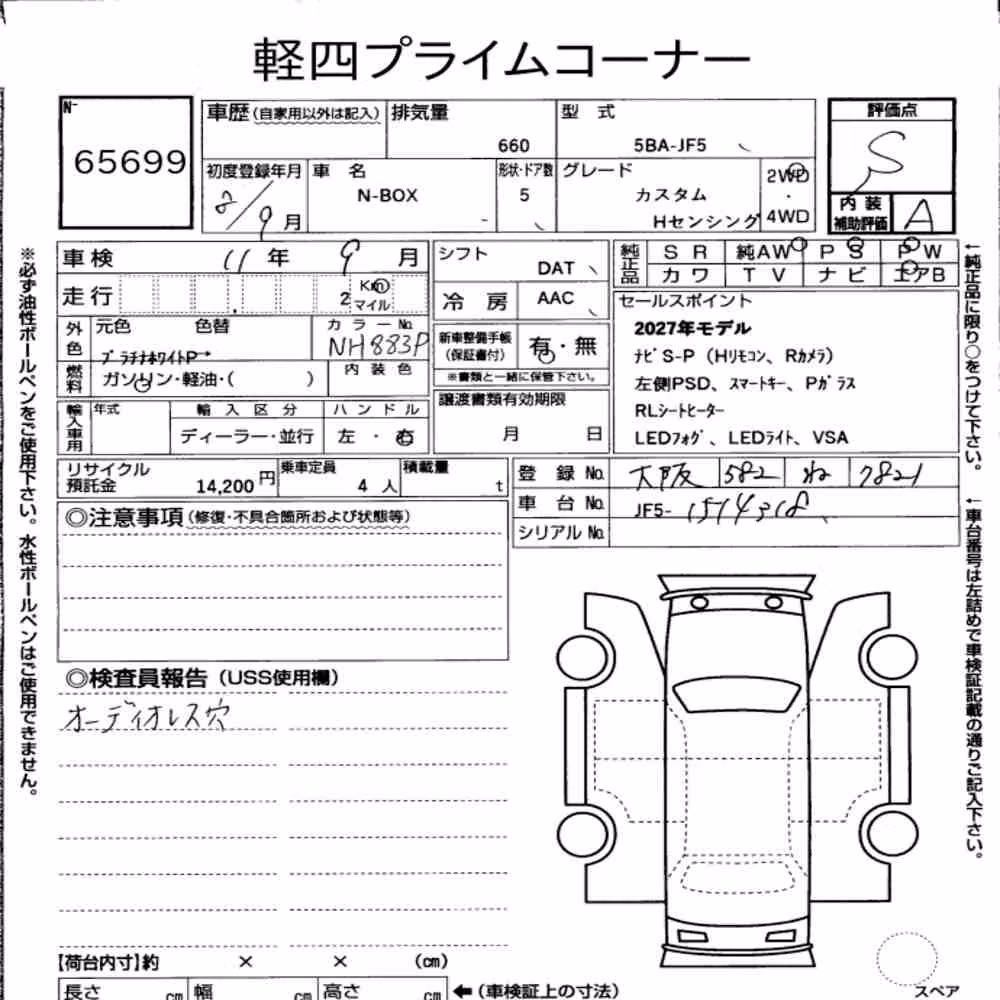 軽四プライムコーナー
N-
65699
車歴(自家用以外は記入)
排気量
660
型 式
5BA-JF5
評価点
S
初度登録年月
2/9月
車 名
N-BOX
形状・ドア数
5
グレード
カスタム
Hセンシング
2WD
・
4WD
内 装
補助評価
A
車検 11年 9月
シフト
DAT
純正品
SR 純AW PS PW
カワ TV ナビ エアB
走行
2
Km
マイル
冷 房
AAC
セールスポイント
2027年モデル
ナビS-P(Hリモコン、Rカメラ)
左側PSD、スマートキー、Pガラス
RLシートヒーター
LEDフォグ、LEDライト、VSA
外色
元色 色替
プラチナホワイトP
カラーNo.
NH883P
新車整備手帳
(保証書付)
有・無
※書類と一緒に保管下さい。
燃料
ガソリン・軽油・( )
内装色
輸入車用
年式
輸入区分
ディーラー・並行
ハンドル
左・右
譲渡書類有効期限
月 日
リサイクル
預託金
14,200円
乗車定員
4人
積載量
t
登録No. 大阪 582 ね 7821
車台No. JF5-1514318
シリアルNo.
◎注意事項(修復・不具合箇所および状態等)
◎検査員報告(USS使用欄)
オーディオレス穴
【荷台内寸】約 × × (cm)
長さ cm 幅 cm 高さ cm
←(車検証上の寸法)
スペア
※必ず油性ボールペンをご使用下さい。水性ボールペンはご使用できません。
←純正品に限り○をつけて下さい。
←車台番号は左詰めで車検証記載の通りご記入下さい。